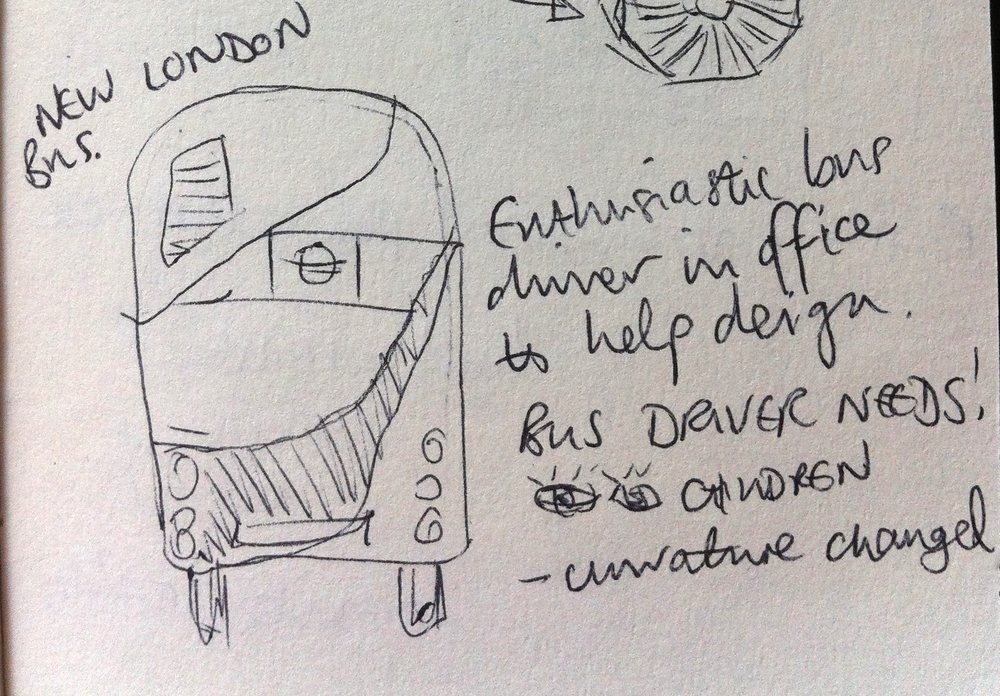 NEW LONDON
BUS.
Enthusiastic bus
driver in office
to help design.
BUS DRIVER NEEDS!
CHILDREN
- curvature changed